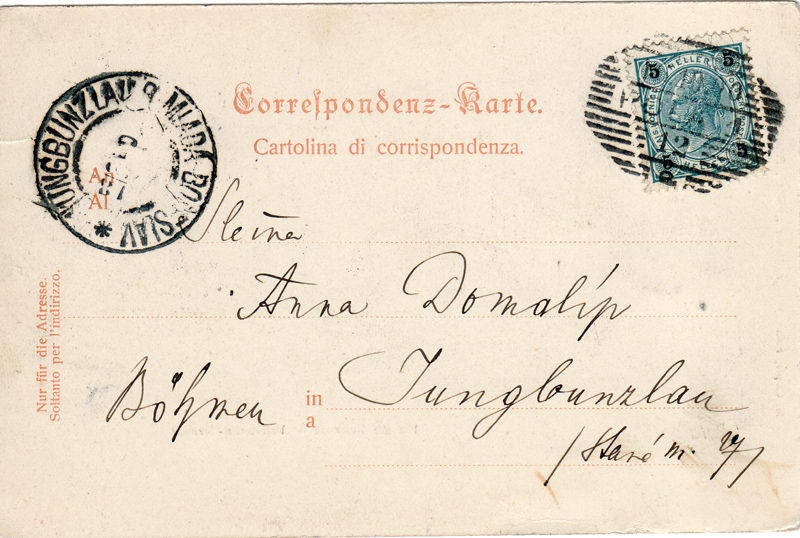 Correspondenz-Karte.
Cartolina di corrispondenza.
5 HELLER 5
5
JUNGBUNZLAU MLADÁ BOLESLAV
An
Al
Anna Domalíp
Böhmen
in
a
Jungbunzlau
/Staré m.
Nur für die Adresse.
Soltanto per l'indirizzo.